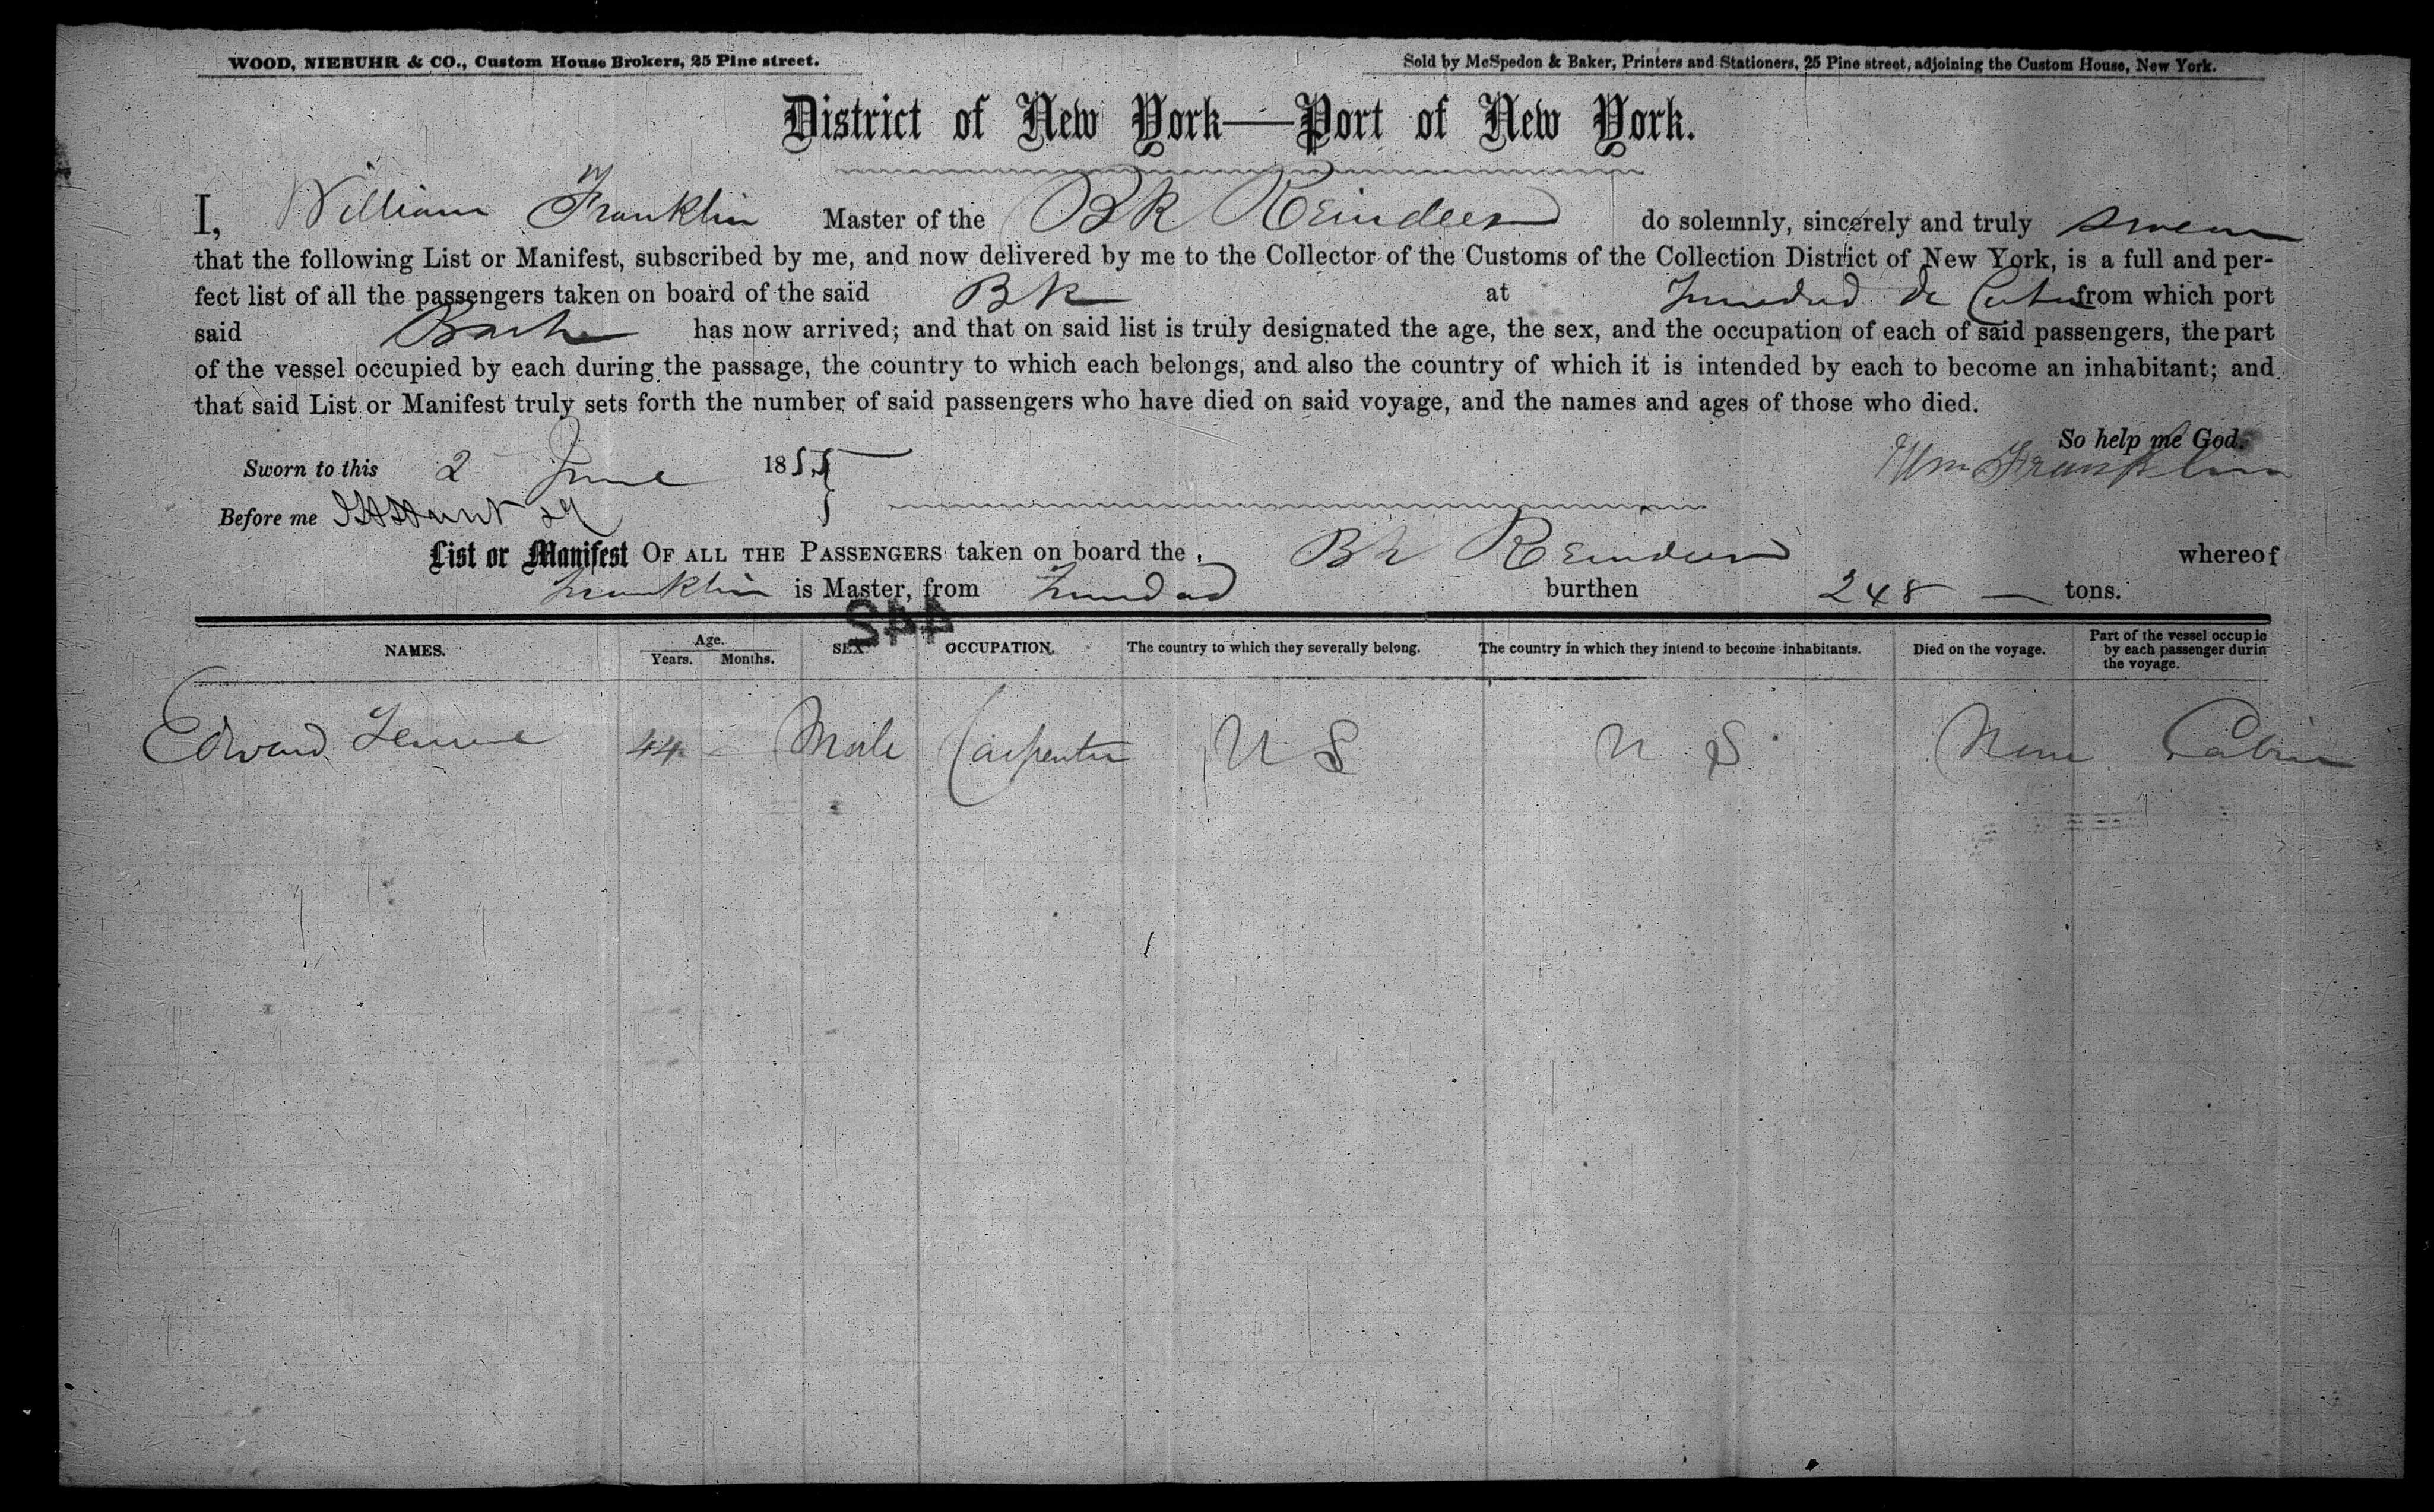 WOOD, NIEBUHR & CO., Custom House Brokers, 25 Pine street.
Sold by McSpedon & Baker, Printers and Stationers, 25 Pine street, adjoining the Custom House, New York.
District of New York—Port of New York.
I, William Franklin Master of the Bk Reindeer do solemnly, sincerely and truly swear
that the following List or Manifest, subscribed by me, and now delivered by me to the Collector of the Customs of the Collection District of New York, is a full and per-
fect list of all the passengers taken on board of the said Bk at Trinidad de Cuba from which port
said Bark has now arrived; and that on said list is truly designated the age, the sex, and the occupation of each of said passengers, the part
of the vessel occupied by each during the passage, the country to which each belongs, and also the country of which it is intended by each to become an inhabitant; and
that said List or Manifest truly sets forth the number of said passengers who have died on said voyage, and the names and ages of those who died.
So help me God.
Sworn to this 2 June 1855 Wm Franklin
Before me
List or Manifest OF ALL THE PASSENGERS taken on board the Bk Reindeer whereof
Franklin is Master, from Trinidad burthen 248 — tons.
442
NAMES. Age. Years. Months. SEX OCCUPATION. The country to which they severally belong. The country in which they intend to become inhabitants. Died on the voyage. Part of the vessel occupie by each passenger durin the voyage.
Edward 44 - Male Carpenter U S U S None Cabin